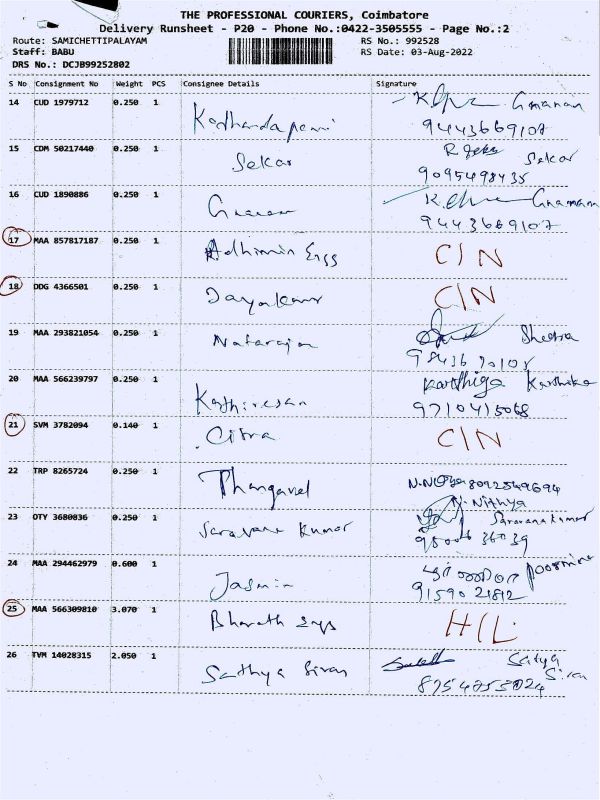 THE PROFESSIONAL COURIERS, Coimbatore
Delivery Runsheet - P20 - Phone No.:0422-3505555 - Page No.:2
Route: SAMICHETTIPALAYAM RS No.: 992528
Staff: BABU RS Date: 03-Aug-2022
DRS No.: DCJB99252802
S No Consignment No Weight PCS Consignee Details Signature
14 CUD 1979712 0.250 1
9443669107
15 CDM 50217440 0.250 1 Sekar Sekar
9095498435
16 CUD 1890886 0.250 1
9443669107
17 MAA 857817187 0.250 1 C/N
18 DDG 4366501 0.250 1 C/N
19 MAA 293821054 0.250 1 Natarajan
20 MAA 566239797 0.250 1 Kathiresan Karthiga Karthika
9710415068
21 SVM 3782094 0.140 1 Citra C/N
22 TRP 8265724 0.250 1 Thangavel
N. Nithya
23 OTY 3680836 0.250 1 Saravana Kumar Saravanakumar
24 MAA 294462979 0.600 1 Jasmin
9159021812
25 MAA 566309810 3.070 1 Bharath H/L
26 TVM 14028315 2.050 1 Sathya Sivan Satya
Sivan